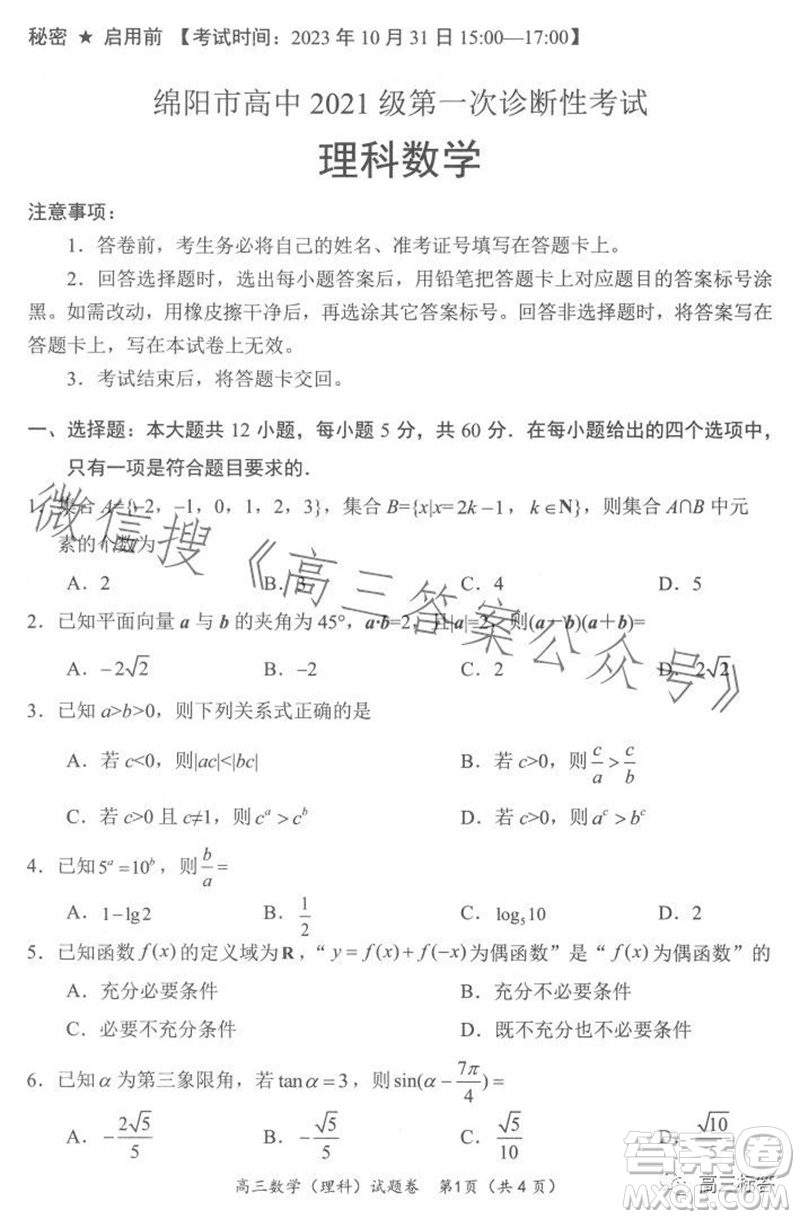 秘密 ★ 启用前 【考试时间：2023 年 10 月 31 日 15:00—17:00】
绵阳市高中 2021 级第一次诊断性考试
理科数学
注意事项：
1．答卷前，考生务必将自己的姓名、准考证号填写在答题卡上。
2．回答选择题时，选出每小题答案后，用铅笔把答题卡上对应题目的答案标号涂
黑。如需改动，用橡皮擦干净后，再选涂其它答案标号。回答非选择题时，将答案写在
答题卡上，写在本试卷上无效。
3．考试结束后，将答题卡交回。
一、选择题：本大题共 12 小题，每小题 5 分，共 60 分．在每小题给出的四个选项中，
只有一项是符合题目要求的．
1．集合 A={-2，-1，0，1，2，3}，集合 B={x|x=2k-1，k∈N}，则集合 A∩B 中元
素的个数为
A．2 B．3 C．4 D．5
2．已知平面向量 a 与 b 的夹角为 45°，a·b=2，且|a|=2，则(a-b)(a+b)=
A．-2√2 B．-2 C．2 D．2√2
3．已知 a>b>0，则下列关系式正确的是
A．若 c<0，则|ac|<|bc| B．若 c>0，则 c/a > c/b
C．若 c>0 且 c≠1，则 c^a > c^b D．若 c>0，则 a^c > b^c
4．已知 5^a=10^b，则 b/a =
A．1-lg2 B．1/2 C．log₅10 D．2
5．已知函数 f(x) 的定义域为 R，“ y=f(x)+f(-x) 为偶函数”是“ f(x) 为偶函数”的
A．充分必要条件 B．充分不必要条件
C．必要不充分条件 D．既不充分也不必要条件
6．已知 α 为第三象限角，若 tanα=3，则 sin(α-7π/4)=
A．-2√5/5 B．-√5/5 C．√5/5 D．√10/5
高三数学（理科）试题卷 第1页（共 4 页）
微信搜《高三答案公众号》
答案卷
高三标答
MXQE.COM